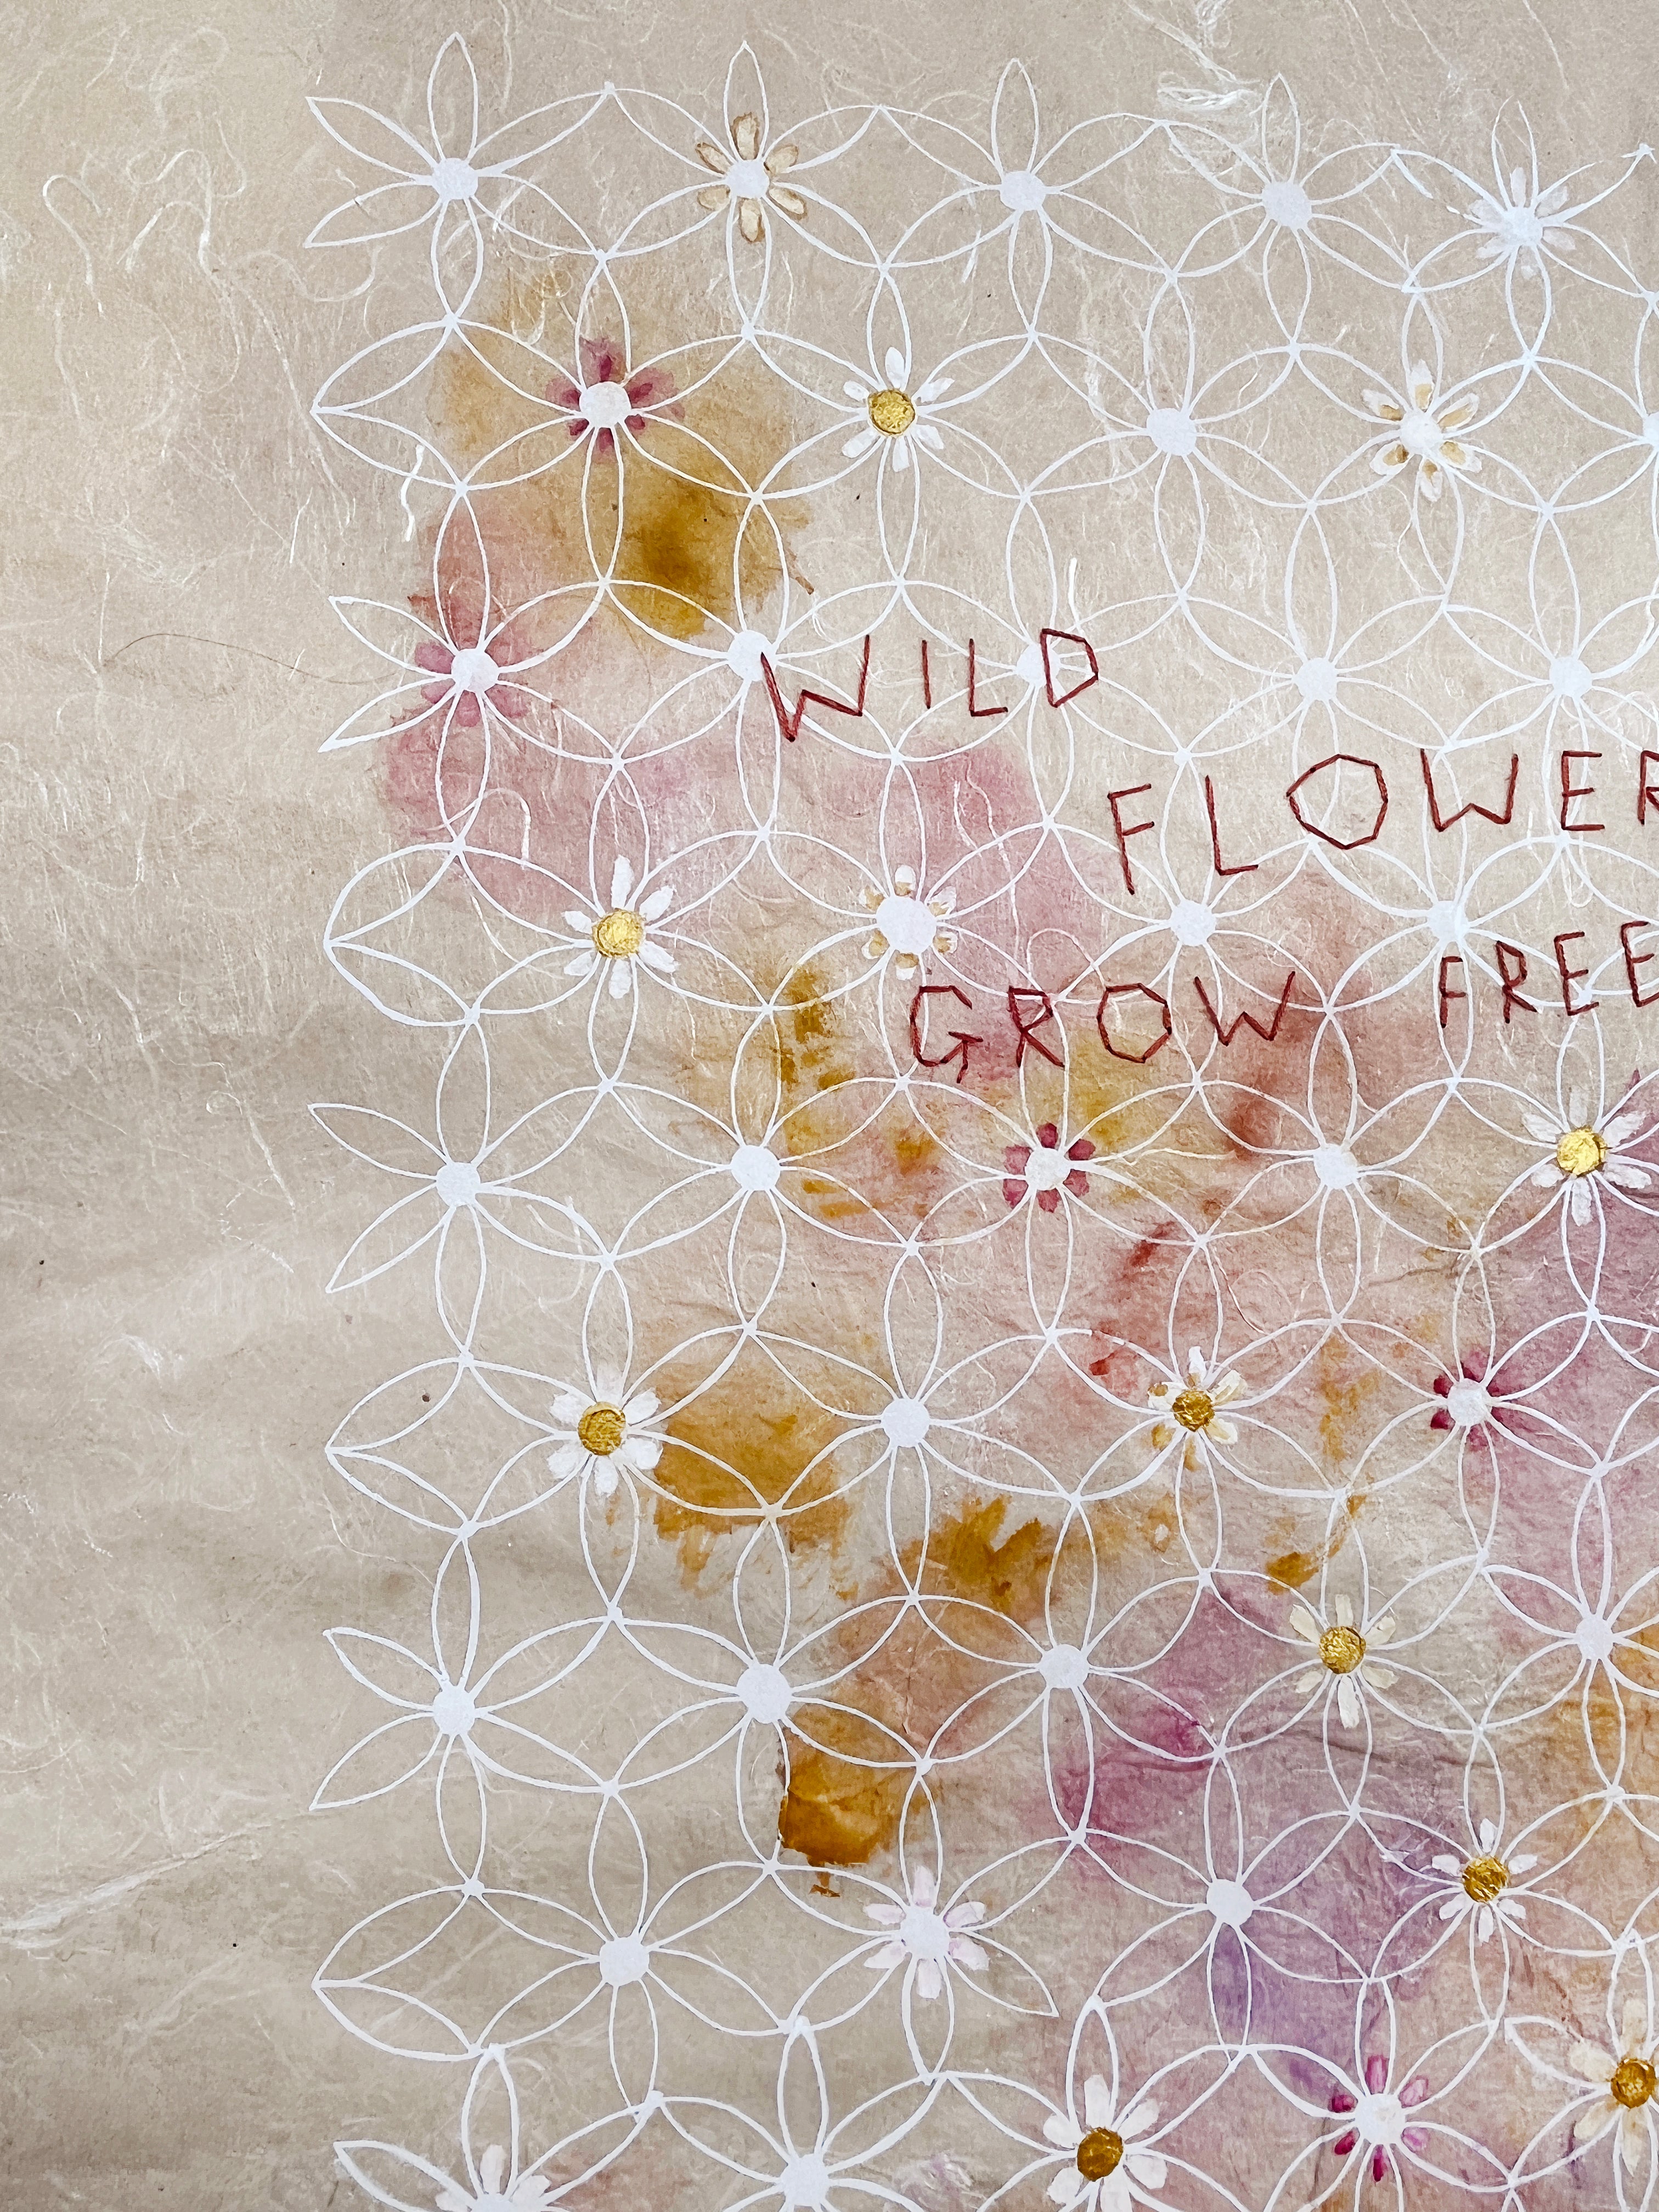 WILD
FLOWER
GROW FREE